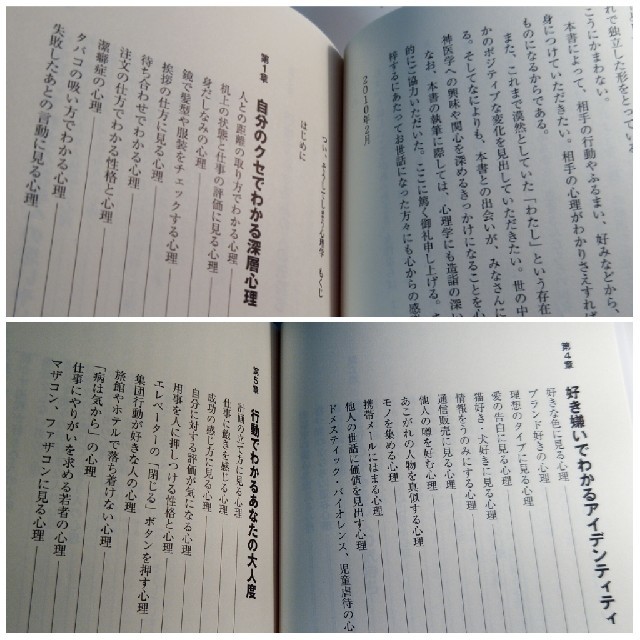 れで独立した形をとってい
こうにかまわない。
本書によって、相手の行動やふるまい、好みなどから、
身につけていただきたい。相手の心理がわかりさえすれば
ものになるからである。
また、これまで漠然としていた「わたし」という存在
かのポジティブな変化を見出していただきたい。世の中
る。そしてなによりも、本書との出会いが、みなさんに
神医学への興味や関心を深めるきっかけになることを心
なお、本書の執筆に際しては、心理学にも造詣の深い
的にご協力いただいた。ここに篤く御礼申し上げる。
棒するにあたってお世話になった方々にも心からの感
2010年2月
心理学 もくじ
はじめに
第1章 自分のクセでわかる深層心理
人との距離の取り方でわかる心理
机上の状態と仕事の評価に見る心理
身だしなみの心理
鏡で髪型や服装をチェックする心理
挨拶の仕方に見る心理
待ち合わせでわかる心理
注文の仕方でわかる性格と心理
潔癖症の心理
タバコの吸い方でわかる心理
失敗したあとの言動に見る心理
第4章 好き嫌いでわかるアイデンティティ
好きな色に見る心理
ブランド好きの心理
理想のタイプに見る心理
愛の告白に見る心理
猫好き・犬好きに見る心理
情報をうのみにする心理
通信販売に見る心理
他人の噂を好む心理
あこがれの人物を真似する心理
モノを集める心理
携帯メールにはまる心理
他人の世話に価値を見出す心理
ドメスティック・バイオレンス、児童虐待の心
第5章 行動でわかるあなたの大人度
計画の立て方に見る心理
仕事に飽きを感じる心理
成功の感じ方に見る心理
自分に対する評価が気になる心理
用事を人に押しつける性格と心理
エレベーターの「閉じる」ボタンを押す心理
集団行動が好きな人の心理
旅館やホテルで落ち着けない心理
「病は気から」の心理
仕事にやりがいを求める若者の心理
マザコン、ファザコンに見る心理